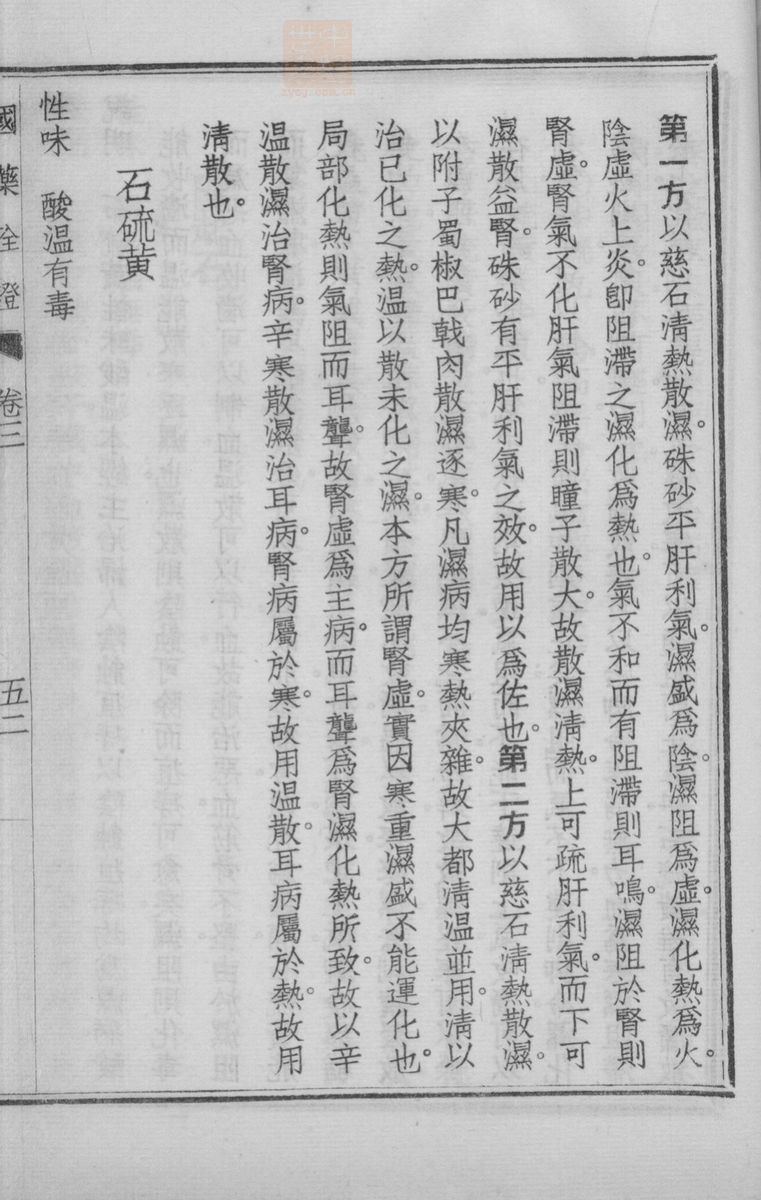 第一方以慈石淸熱散濕。硃砂平肝利氣。濕盛爲陰。濕阻爲虛。濕化熱爲火。
陰虛火上炎。卽阻滯之濕化爲熱也。氣不和而有阻滯則耳鳴。濕阻於腎則
腎虛。腎氣不化肝氣阻滯則瞳子散大。故散濕淸熱。上可疏肝利氣。而下可
濕散益腎。硃砂有平肝利氣之效。故用以爲佐也。第二方以慈石淸熱散濕。
以附子蜀椒巴戟肉散濕逐寒。凡濕病均寒熱夾雜。故大都淸温並用。淸以
治已化之熱。温以散未化之濕。本方所謂腎虛。實因寒重濕盛不能運化也。
局部化熱則氣阻而耳聾。故腎虛爲主病。而耳聾爲腎濕化熱所致。故以辛
温散濕治腎病。辛寒散濕治耳病。腎病屬於寒。故用温散。耳病屬於熱。故用
淸散也。
石硫黄
性味 酸温有毒
國藥詮證 卷三 五二